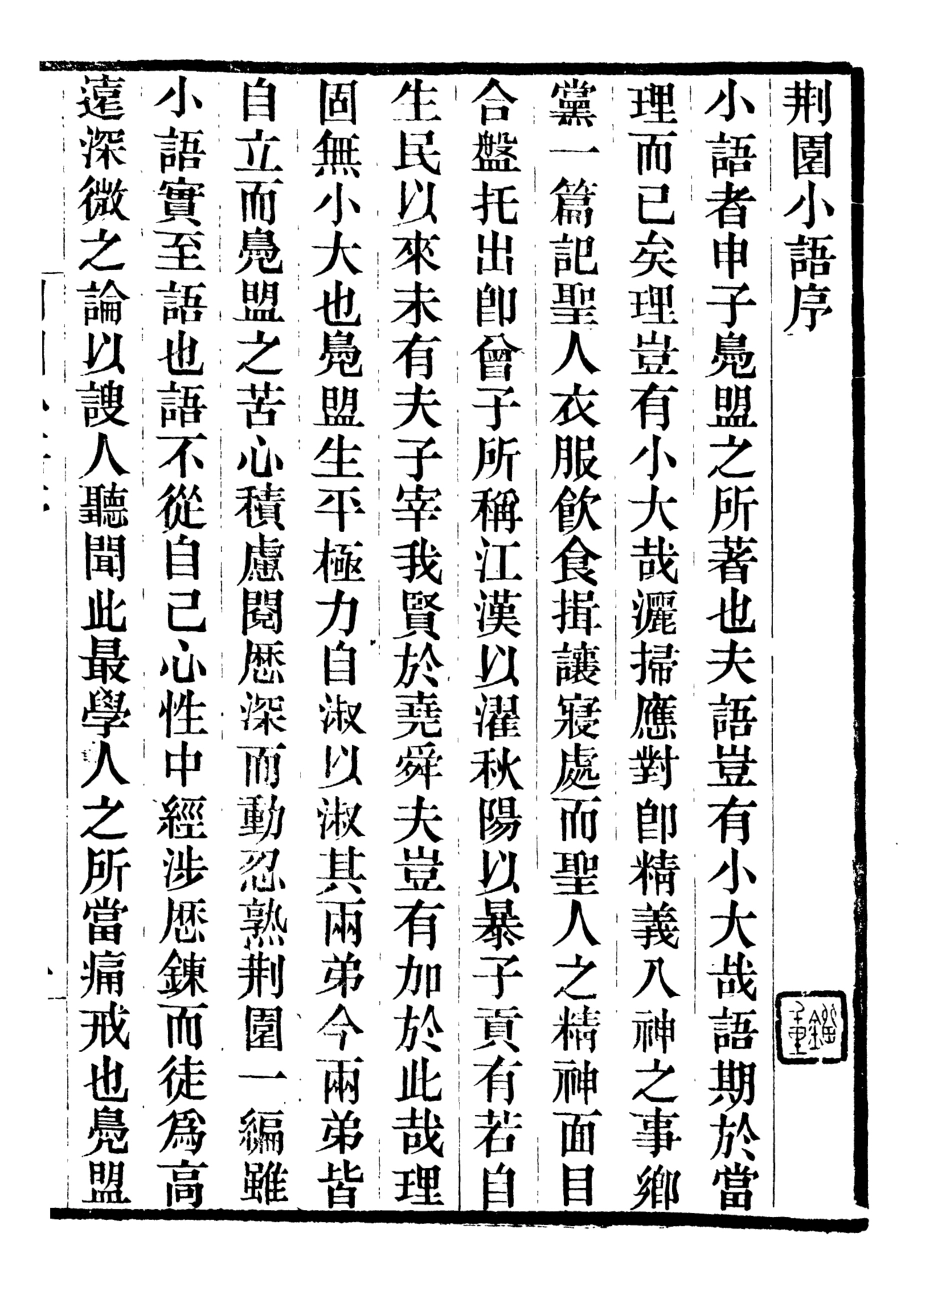 荆園小語序
小語者申子鳧盟之所著也夫語豈有小大哉語期於當
理而已矣理豈有小大哉灑掃應對卽精義入神之事鄉
黨一篇記聖人衣服飮食揖讓寢處而聖人之精神面目
合盤托出卽曾子所稱江漢以濯秋陽以暴子貢有若自
生民以來未有夫子宰我賢於堯舜夫豈有加於此哉理
固無小大也鳧盟生平極力自淑以淑其兩弟今兩弟皆
自立而鳧盟之苦心積慮閱歷深而動忍熟荆園一編雖
小語實至語也語不從自己心性中經涉歷鍊而徒爲高
遠深微之論以謏人聽聞此最學人之所當痛戒也鳧盟